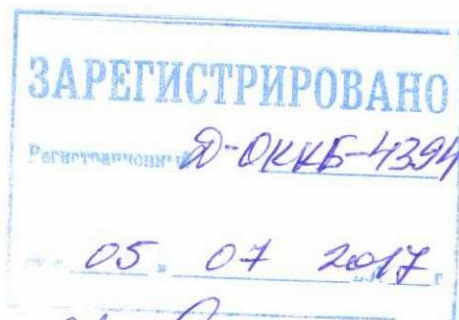 ЗАРЕГИСТРИРОВАНО
Регистрационный Д-ОККБ-4394
от « 05 » 07 2017 г